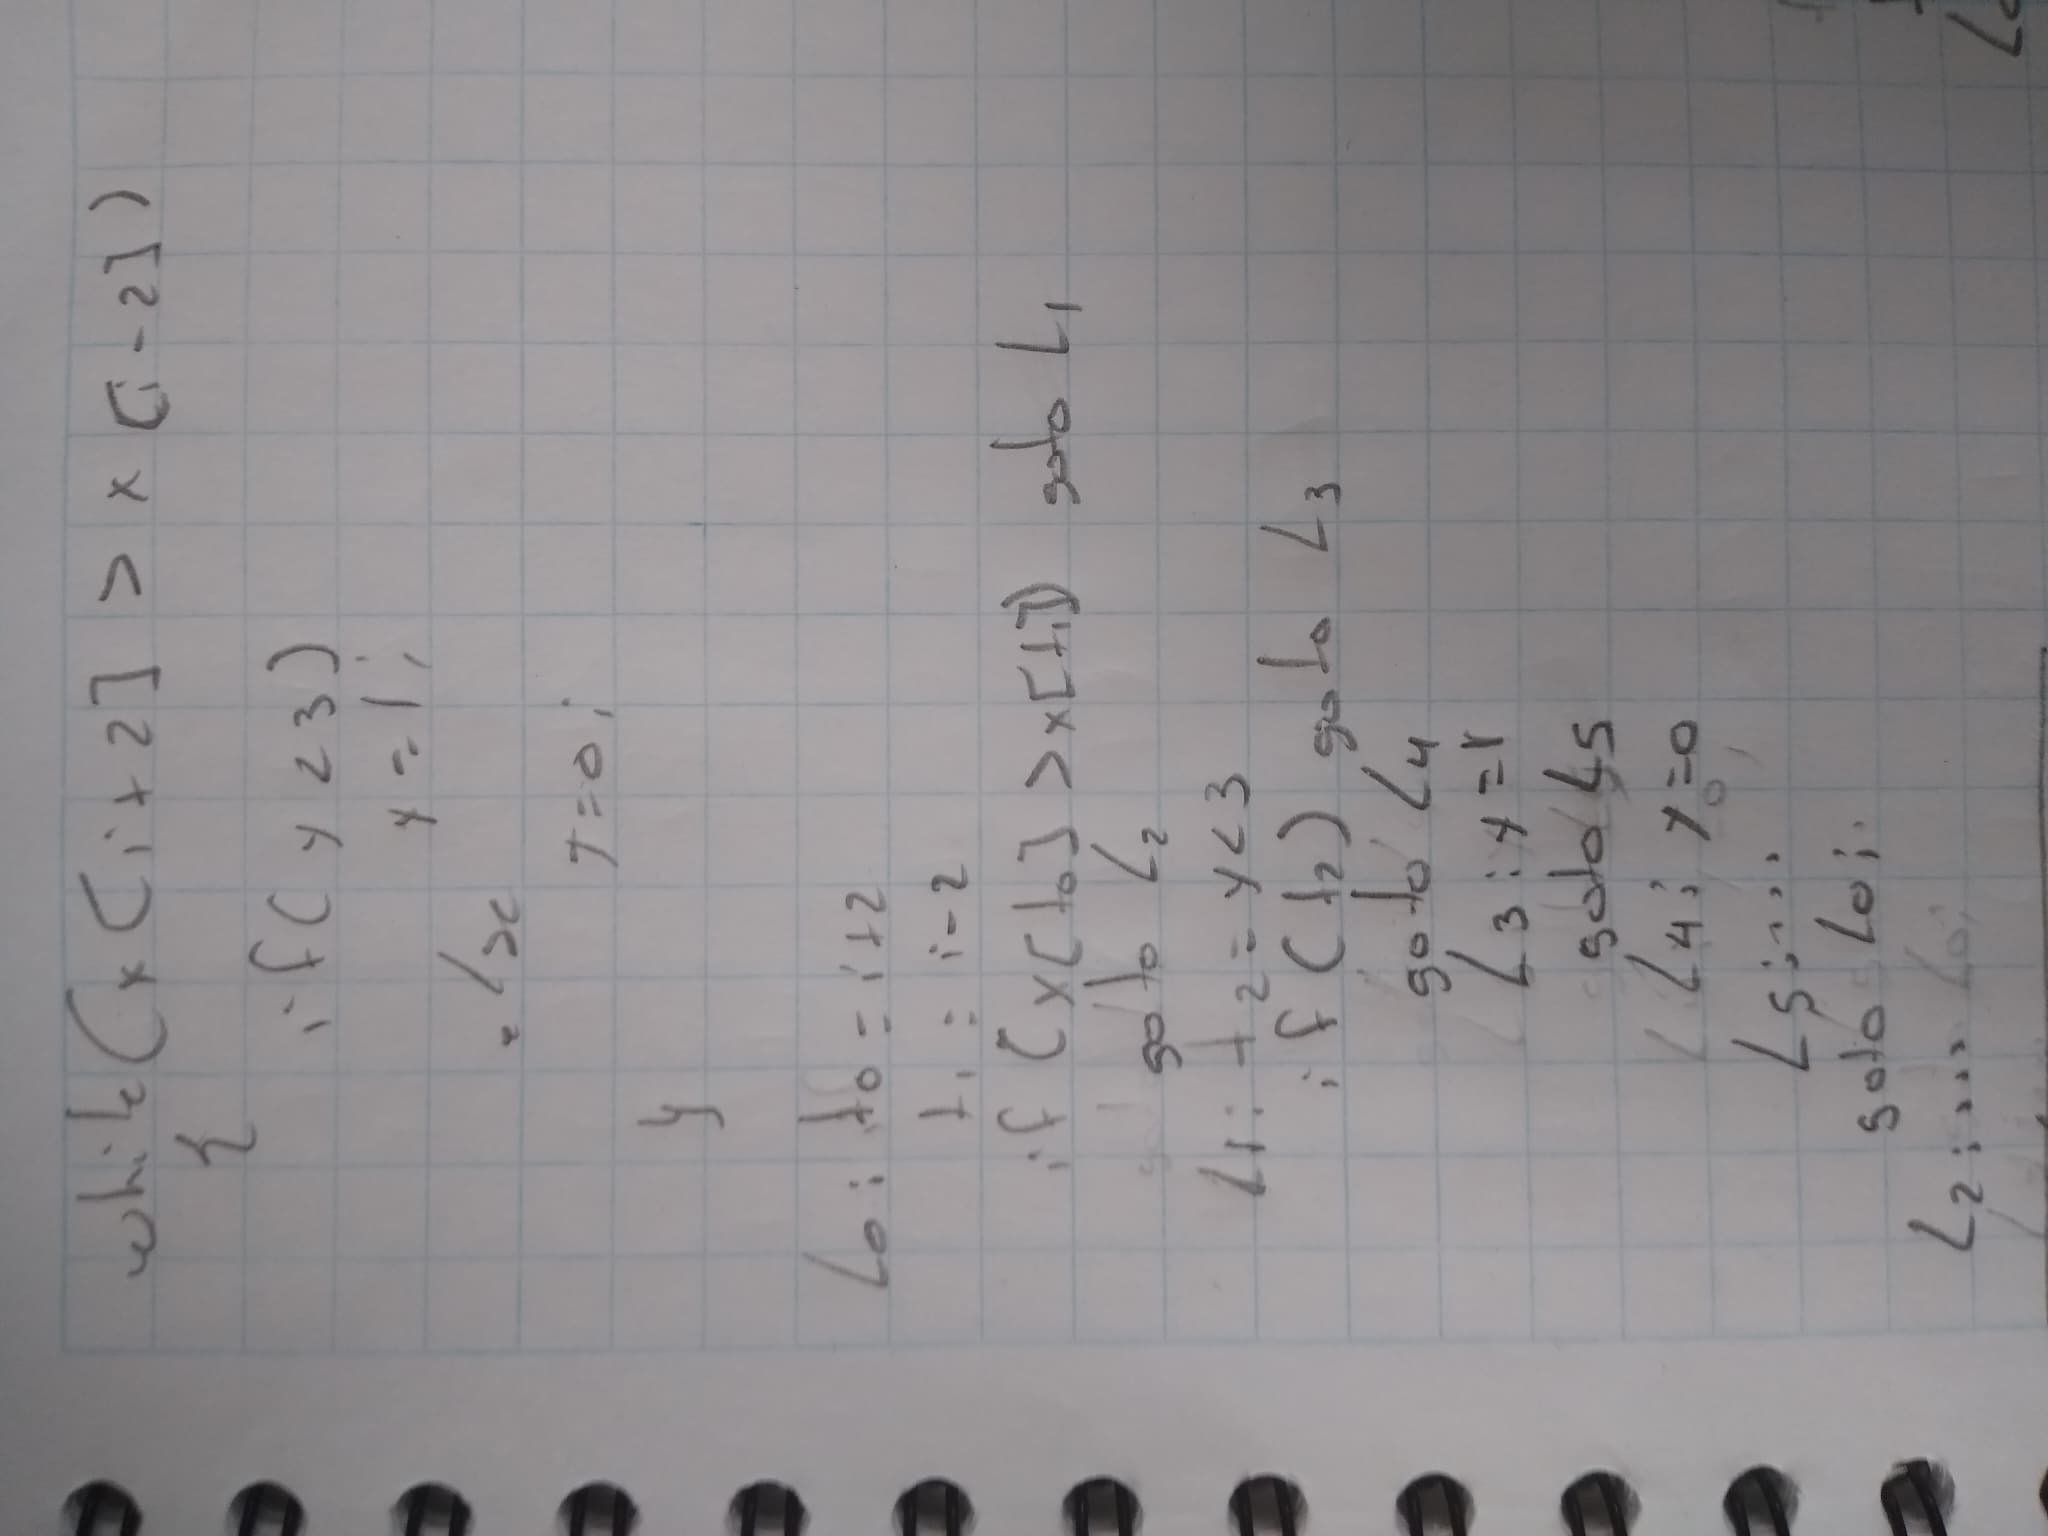 while(x[i+2] > x[i-2])
{
if(y<3)
y=1;
else
y=0;
}
L0: t0=i+2
t1=i-2
if (x[t0]>x[t1]) goto L1
goto L2
L1: t2=y<3
if (t2) goto L3
goto L4
L3: y=1
goto L5
L4: y=0
L5:...
goto L0;
L2:...